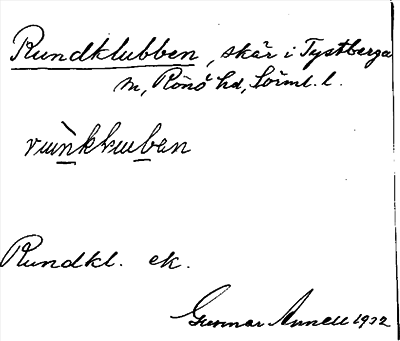 Rundklubben, skär i Tystberga
sn, Rönö hd, Sörml. l.
Rundkl. ek.
Gunnar Annell 1932